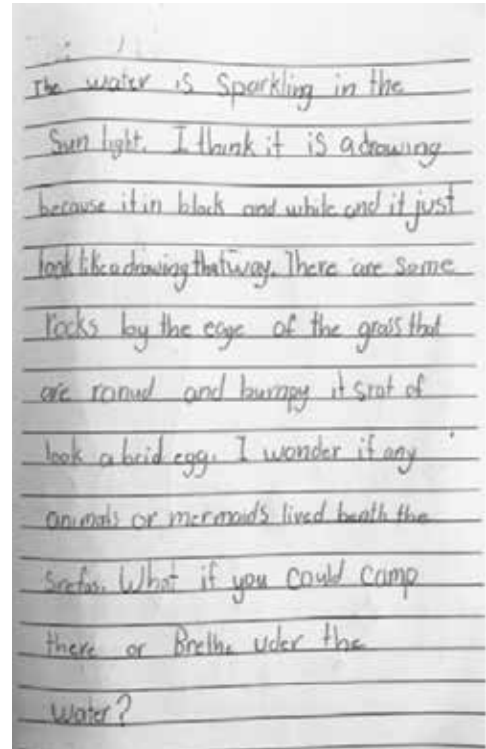 The water is Sparkling in the
Sun light. I think it is a drawing
because it in black and while and it just
look like a drawing that way. There are some
rocks by the egye of the grass that
are ronud and bumpy it srat of
look a beid egg. I wonder if any
animals or mermaids lived benth the
Srefas. What if you could camp
there or Brethe uder the
water?